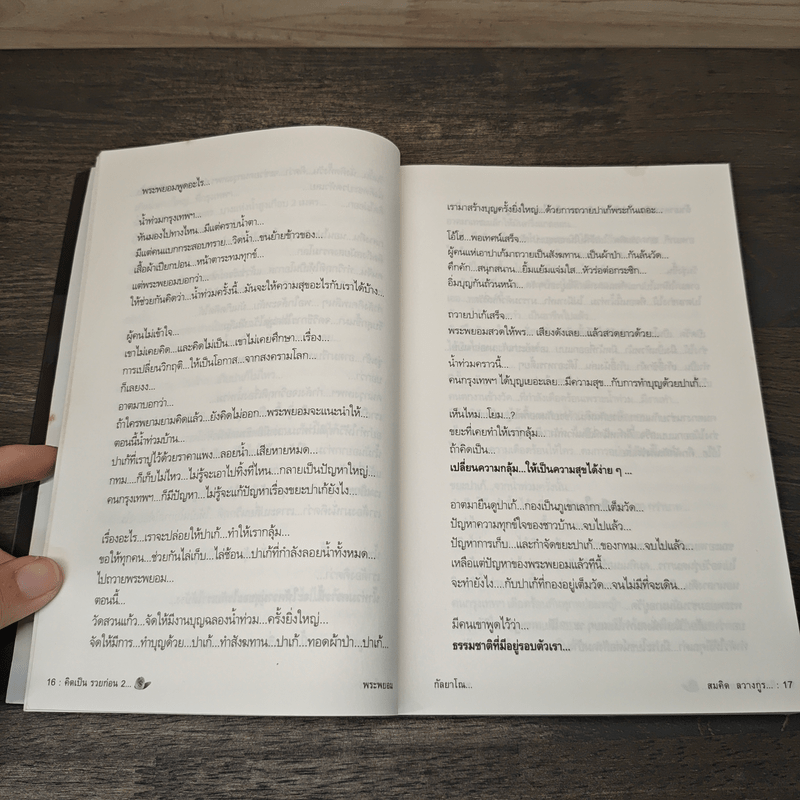 พระพยอมพูดอะไร...
น้ำท่วมกรุงเทพฯ...
หันมองไปทางไหน...มีแต่คราบน้ำตา...
มีแต่คนแบกกระสอบทราย...วิดน้ำ...ขนย้ายข้าวของ...
เสื้อผ้าเปียกปอน...หน้าตาระทมทุกข์...
แต่พระพยอมบอกว่า...
ให้ช่วยกันคิดว่า...น้ำท่วมครั้งนี้...มันจะให้ความสุขอะไรกับเราได้บ้าง...
ผู้คนไม่เข้าใจ...
เขาไม่เคยคิด...และคิดไม่เป็น...เขาไม่เคยศึกษา...เรื่อง...
การเปลี่ยนวิกฤติ...ให้เป็นโอกาส...จากสงครามโลก...
ก็เลยงง...
อาตมาบอกว่า...
ถ้าใครพยายามคิดแล้ว...ยังคิดไม่ออก...พระพยอมจะแนะนำให้...
ตอนนี้น้ำท่วมบ้าน...
ปาเก้ที่เราปูไว้ด้วยราคาแพง...ลอยน้ำ...เสียหายหมด...
กทม...ก็เก็บไม่ไหว...ไม่รู้จะเอาไปทิ้งที่ไหน...กลายเป็นปัญหาใหญ่...
คนกรุงเทพฯ...ก็มีปัญหา...ไม่รู้จะแก้ปัญหาเรื่องขยะปาเก้ยังไง...
เรื่องอะไร...เราจะปล่อยให้ปาเก้...ทำให้เรากลุ้ม...
ขอให้ทุกคน...ช่วยกันไล่เก็บ...ไล่ช้อน...ปาเก้ที่กำลังลอยน้ำทั้งหมด...
ไปถวายพระพยอม...
ตอนนี้...
วัดสวนแก้ว...จัดให้มีงานบุญฉลองน้ำท่วม...ครั้งยิ่งใหญ่...
จัดให้มีการ...ทำบุญด้วย...ปาเก้...ทำสังฆทาน...ปาเก้...ทอดผ้าป่า...ปาเก้...
16 : คิดเป็น รวยก่อน 2...
พระพยอม
เรามาสร้างบุญครั้งยิ่งใหญ่...ด้วยการถวายปาเก้พระกันเถอะ...
โอ้โฮ...พอเทศน์เสร็จ...
ผู้คนแห่เอาปาเก้มาถวายเป็นสังฆทาน...เป็นผ้าป่า...กันลั่นวัด...
คึกคัก...สนุกสนาน...ยิ้มแย้มแจ่มใส...หัวร่อต่อกระซิก...
อิ่มบุญกันถ้วนหน้า...
ถวายปาเก้เสร็จ...
พระพยอมสวดให้พร... เสียงดังเลย...แล้วสวดยาวด้วย...
น้ำท่วมคราวนี้...
คนกรุงเทพฯ ได้บุญเยอะเลย...มีความสุข...กับการทำบุญด้วยปาเก้...
เห็นไหม...โยม...?
ขยะที่เคยทำให้เรากลุ้ม...
ถ้าคิดเป็น...
เปลี่ยนความกลุ้ม...ให้เป็นความสุขได้ง่าย ๆ ...
อาตมายืนดูปาเก้...กองเป็นภูเขาเลากา...เต็มวัด...
ปัญหาความทุกข์ใจของชาวบ้าน...จบไปแล้ว...
ปัญหาการเก็บ...และกำจัดขยะปาเก้...ของกทม...จบไปแล้ว...
เหลือแต่ปัญหาของพระพยอมแล้วทีนี้...
จะทำยังไง....กับปาเก้ที่กองอยู่เต็มวัด...จนไม่มีที่จะเดิน...
มีคนเขาพูดไว้ว่า...
ธรรมชาติที่มีอยู่รอบตัวเรา...
กัลยาโณ...
สมคิด ลวางกูร... : 17